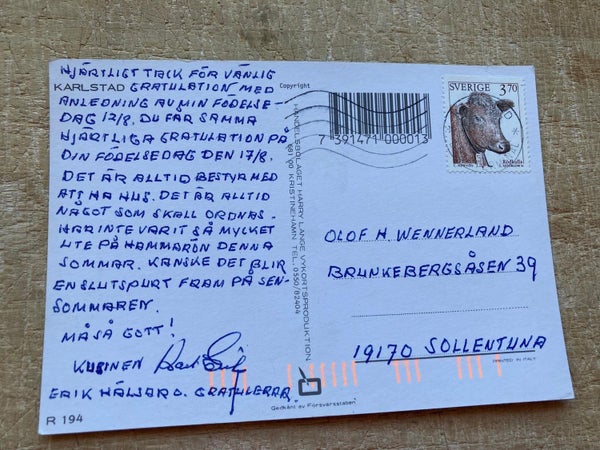 HJÄRTLIGT TACK FÖR VÄNLIG
KARLSTAD GRATULATION MED
ANLEDNING AV MIN FÖDELSE-
DAG 12/8. DU FÅR SAMMA
HJÄRTLIGA GRATULATION PÅ
DIN FÖDELSEDAG DEN 17/8.
DET ÄR ALLTID BESTYR MED
ATT HA HUS. DET ÄR ALLTID
NÅGOT SOM SKALL ORDNAS.
HAR INTE VARIT SÅ MYCKET
UTE PÅ HAMMARÖN DENNA
SOMMAR. KANSKE DET BLIR
EN SLUTSPURT FRAM PÅ SEN-
SOMMAREN.
MÅ SÅ GOTT!
KUSINEN
ERIK HÄLSAR O. GRATULERAR.
R 194
Copyright
7 391471 000013
HANDELSBOLAGET HARRY LANGE VYKORTSPRODUKTION
681 00 KRISTINEHAMN TEL. 0550/82404
Godkänt av Försvarsstaben
SVERIGE 3.70
Rödkulla
OLOF H. WENNERLAND
BRUNKEBERGSÅSEN 39
19170 SOLLENTUNA
PRINTED IN ITALY